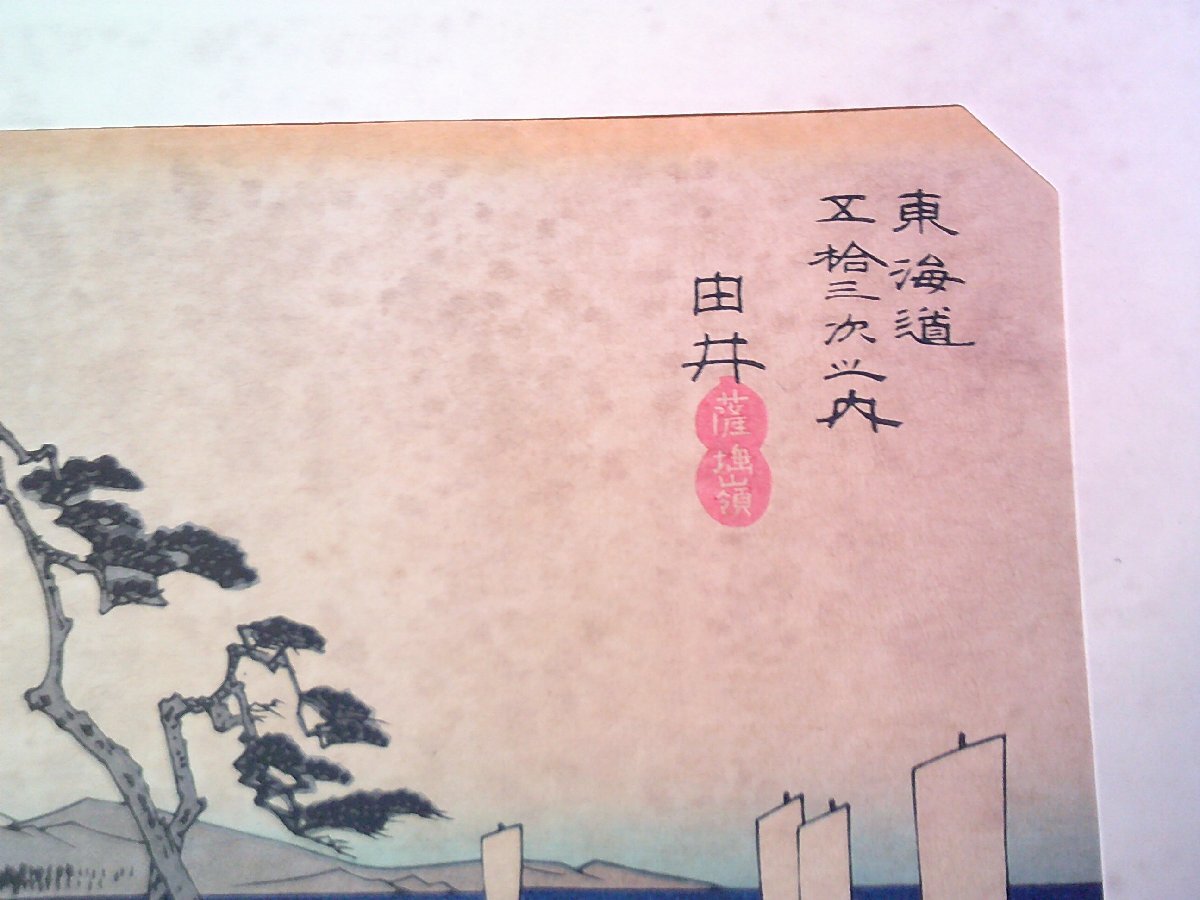 東海道
五拾三次之内
由井
薩埵嶺